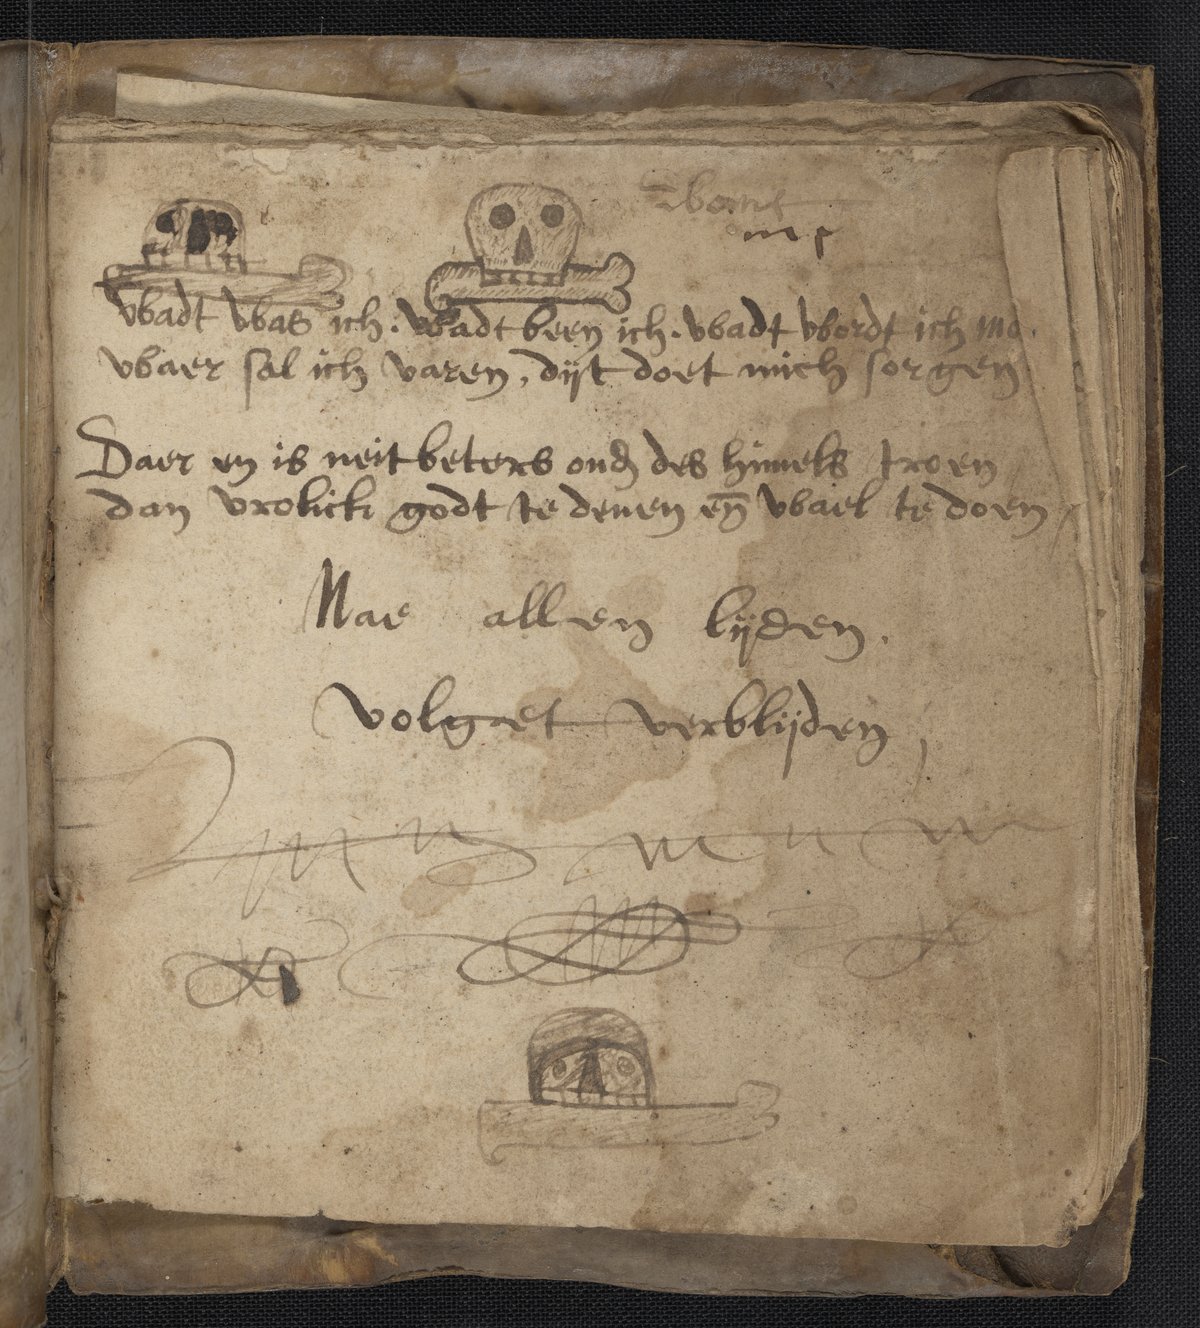 wadt was ich. wadt been ich. wadt wordt ich mo
waer sal ich varen, dijt doet mich sorgen
Daer en is neit beters ond des himels troen
dan vrolick godt te denen en̄ wael te doen
Nae allen lijden.
volget verblijden